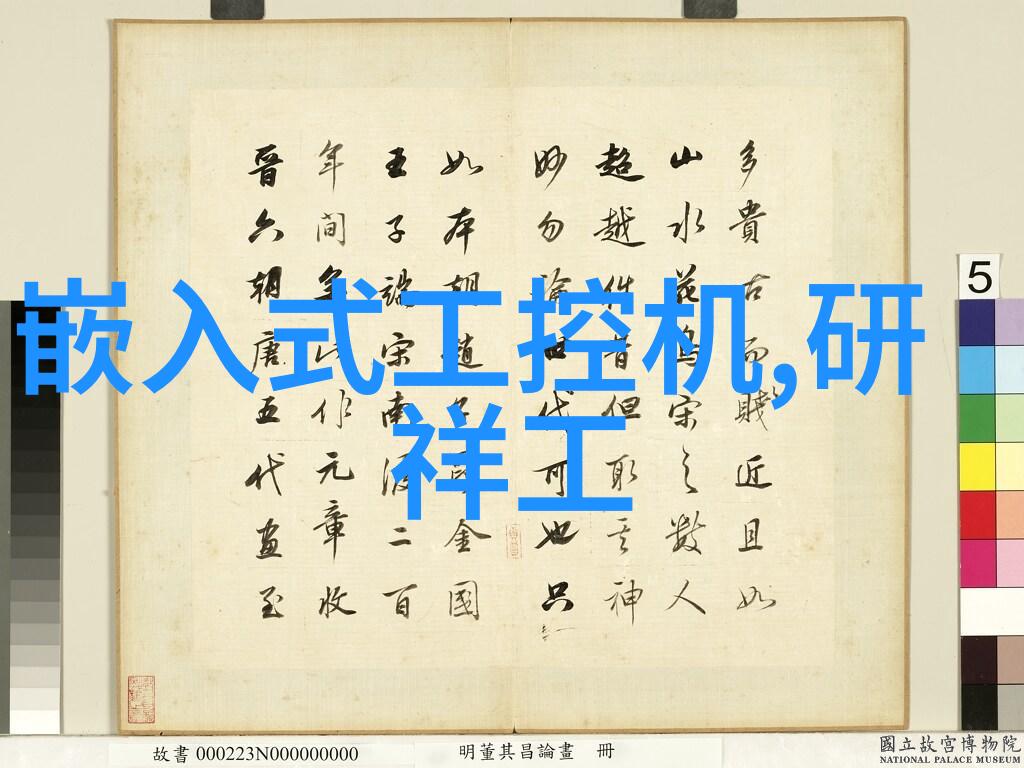 嵌入式工控机,研
祥工
多貴古而賤近且如
山水花鳥宋之數人
超越往昔但取其神
妙勿論世代可也只
如本朝趙子昂金國
王子端宋南渡二百
年間無此作元章收
晉六朝唐五代畫至
5
故書 000223N000000000
明董其昌論畫 冊
國立故宮博物院
NATIONAL PALACE MUSEUM